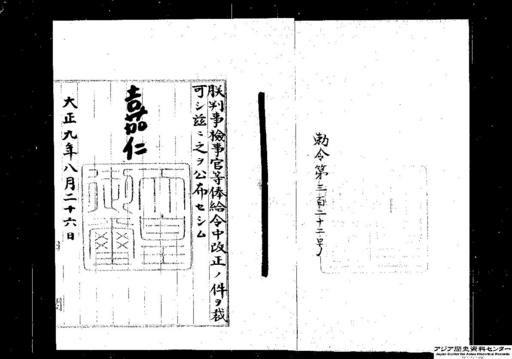 勅令第三百二十二号
朕判事検事官等俸給令中改正ノ件ヲ裁
可シ茲ニ之ヲ公布セシム
嘉仁
大正九年八月二十六日
天皇御璽
アジア歴史資料センター
Japan Center for Asian Historical Records